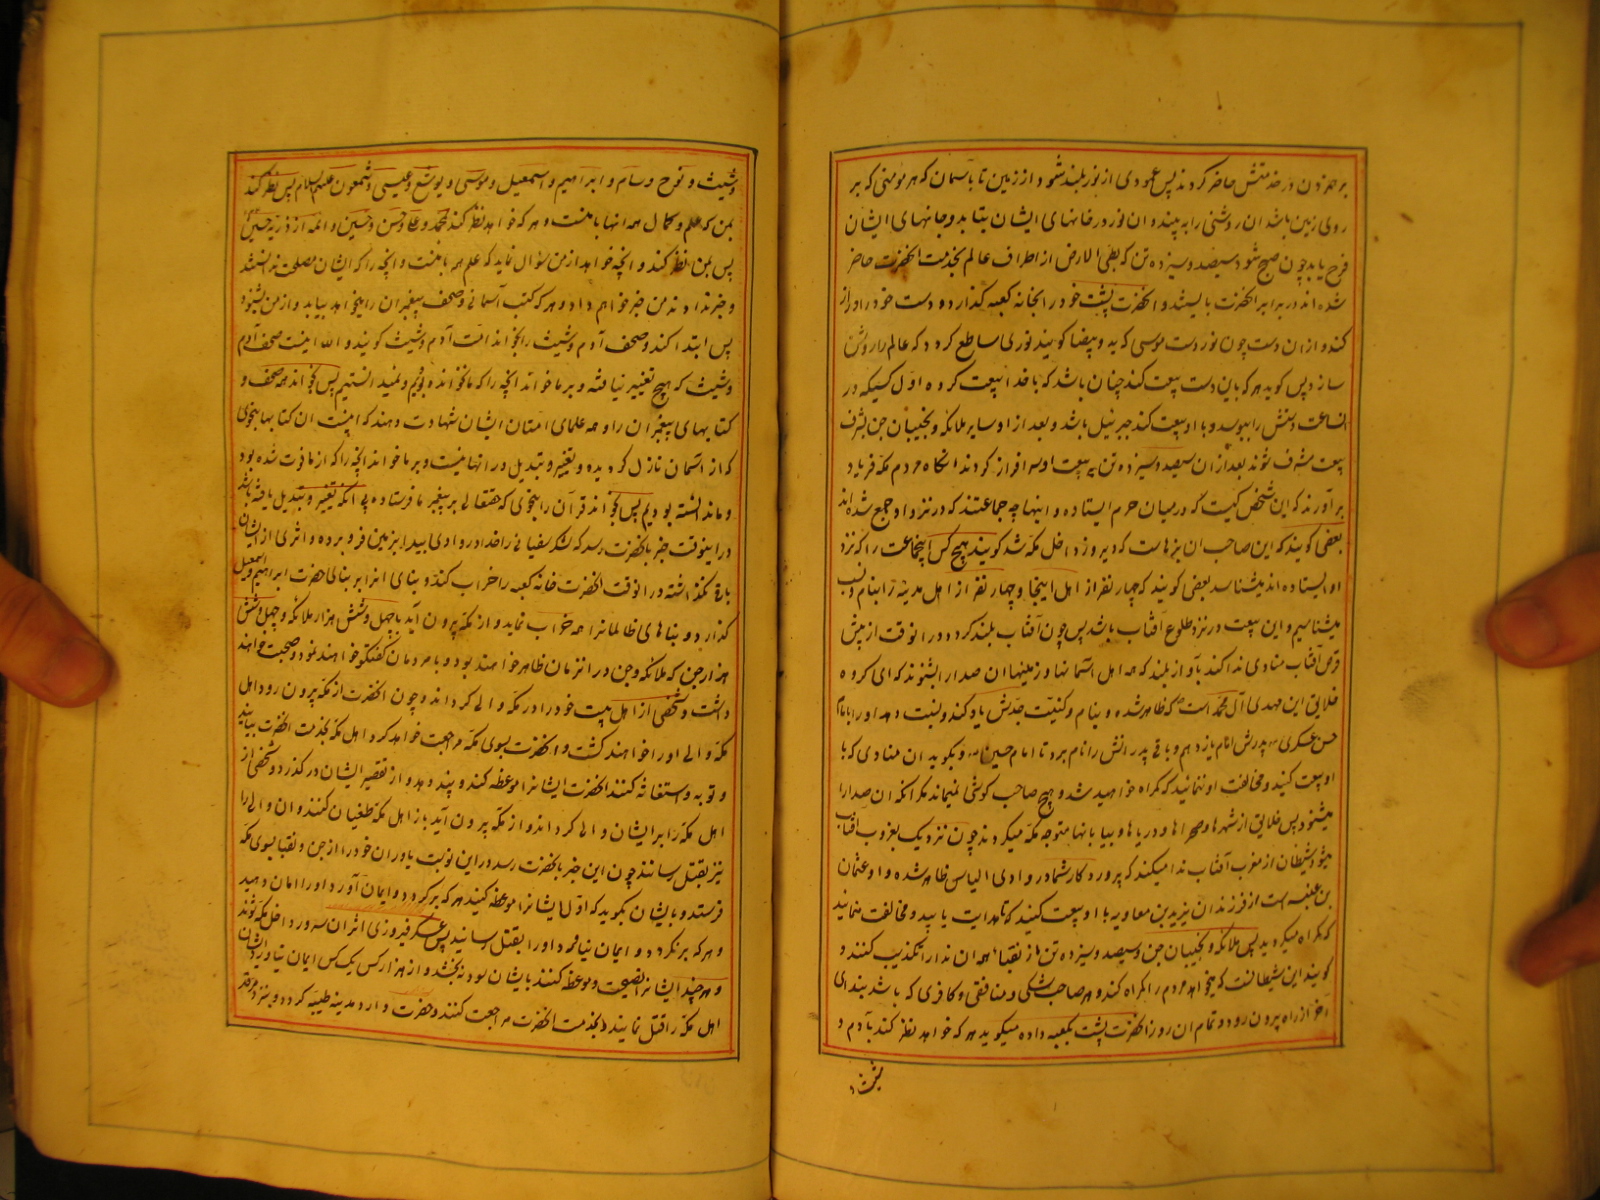 بر هم زدن در خدمتش حاضر گردند پس عمودی از نور بلند شود از زمین تا بآسمان که هر مؤمنی که بر
روی زمین باشد ان روشنی را به بیند و ان نور در خانهای ایشان بتابد و جانهای ایشان
فرح یابد چون صبح شود سیصد و سیزده تن که بطی الارض از اطراف عالم بخدمت انحضرت حاضر
شده اند در برابر انحضرت بایستند و انحضرت پشت خود را بخانه کعبه گذارد و دست خود را دراز
کند و از ان دست چون نور دست موسی که ید و بیضا گویند نوری ساطع گردد که عالم را روشن
سازد پس گوید هر که باین دست بیعت کند چنان باشد که با خدا بیعت کرده اول کسیکه در
انساعت دستش را ببوسد و با او بیعت کند جبرئیل باشد و بعد از او سایر ملائکه و نجیبان جن بشرف
بیعت مشرف شوند بعد از ان سیصد و سیزده تن به بیعت او سرافراز گردند انگاه مردم مکه فریاد
بر آورند که این شخص کیست که در میان حرم ایستاده و اینها چه جماعتند که در نزد او جمع شده اند
بعضی گویند که این صاحب ان بزهاست که دیروز داخل مکه شد گویند هیچ کس اینجماعت را که نزد
او ایستاده اند میشناسد بعضی گویند که چهار نفر از اهل اینجا و چهار نفر از اهل مدینه را بنام و نسب
میشناسیم و این بیعت در نزد طلوع آفتاب باشد پس چون آفتاب بلند گردد در انوقت از پیش
قرص آفتاب منادی ندا کند بآواز بلند که همه اهل آسمانها و زمینها ان صدا را بشنوند که ای گروه
خلایق این مهدی آل محمد است که ظاهر شده و بنام و کنیت جدش یاد کند و نسبت دهد او را بامام
حسن عسکری پدرش امام یازدهم و باقی پدرانش را نام برد تا امام حسین و بگوید ان منادی که با
او بیعت کنید و مخالفت او ننمائید که گمراه خواهید شد و هیچ صاحب گوشی نمیماند مگر انکه ان صدا را
میشنود پس خلایق از شهرها و صحراها و دریاها و بیابانها متوجه مکه میگردند چون نزدیک بغروب آفتاب
میشود شیطان از مغرب آفتاب ندا میکند که پروردگار شما در وادی الیاس ظاهر شده و او عثمان
بن عنبسه است از فرزندان یزید بن معاویه با او بیعت کنید که تا هدایت یابید و مخالفت منمائید
که گمراه میگردید پس ملائکه و نجیبان جن و سیصد و سیزده تن از نقبا همه ان ندا را تکذیب کنند و
گویند این شیطانست که میخواهد مردم را گمراه کند و هر صاحب شکی و منافقی و کافری که باشد بندای
آخر از راه بیرون رود و تمام ان روز انحضرت پشت بکعبه داده میگوید هر که خواهد نظر کند بآدم و
شیث و
و شیث و نوح و سام و ابراهیم و اسمعیل و موسی و یوشع و عیسی و شمعون علیهم السلام پس نظر کند
بمن که علم و کمال همه انها با منست و هر که خواهد نظر کند بمحمد و علی و حسن و حسین و ائمه از ذریه حسین
پس بمن نظر کند و انچه خواهد از من سؤال نماید که علم همه با منست و انچه را که ایشان مصلحت ندانستند
و خبر ندادند من خبر خواهم داد و هر که کتب آسمانی و صحف پیغمبران را میخواهد بیاید و از من بشنود
پس ابتدا کند و صحف آدم و شیث را بخواند امت آدم و شیث گویند و الله اینست صحف آدم
و شیث که هیچ تغییر نیافته و بر ما خواند انچه را که ما نخوانده بودیم و نمیدانستیم پس بخواند همه صحف و
کتابهای پیغمبران را و همه علمای امتان ایشان شهادت دهند که اینست ان کتابها بنحوی
که از آسمان نازل گردیده و تغییر و تبدیل در انها نیست و بر ما خواند انچه را که از ما فوت شده بود
و ما ندانسته بودیم پس بخواند قرآن را بنحوی که حقتعالی بر پیغمبر ما فرستاده بی انکه تغییر و تبدیل یافته باشد
در اینوقت خبر بانحضرت رسد که لشکر سفیانی را خدا در وادی بیدا بزمین فرو برده و اثری از ایشان
باقی نگذاشته در انوقت انحضرت خانه کعبه را خراب کند و بنای انرا بر بنای حضرت ابراهیم و اسمعیل
گذارد و بناهای ظالمانرا همه خراب نماید و از مکه بیرون آید با چهل و شش هزار ملائکه و چهل و شش
هزار جن که ملائکه و جن در انزمان ظاهر خواهند بود و با مردمان گفتگو خواهند نمود و صحبت خواهند
داشت و شخصی از اهل بیت خود را در مکه والی گرداند و چون انحضرت از مکه بیرون رود اهل
مکه والی او را خواهند کشت و انحضرت بسوی مکه مراجعت خواهد کرد و اهل مکه بخدمت انحضرت بیایند
و توبه و استغاثه کنند انحضرت ایشانرا موعظه کند و پند دهد و از تقصیر ایشان در گذرد و شخصی از
اهل مکه را بر ایشان والی گرداند و از مکه بیرون آید باز اهل مکه طغیان کنند و ان والی را
نیز بقتل رسانند چون این خبر بانحضرت رسد در این نوبت یاوران خود را از جن و نقبا بسوی مکه
فرستد و بایشان بگوید که اول ایشانرا موعظه کنید هر که برگردد و ایمان آورد او را امان دهید
و هر که برنگردد و ایمان نیاورد او را بقتل رسانید پس عسکر فیروزی اثر ان سرور داخل مکه شوند
و هر چند ایشانرا نصیحت و موعظه کنند بایشان سود نبخشد و از هزار کس یک کس ایمان نیاورد ایشان
اهل مکه را قتل نمایند و بخدمت انحضرت مراجعت کنند و حضرت وارد مدینه طیبه گردد و بنزد مرقد